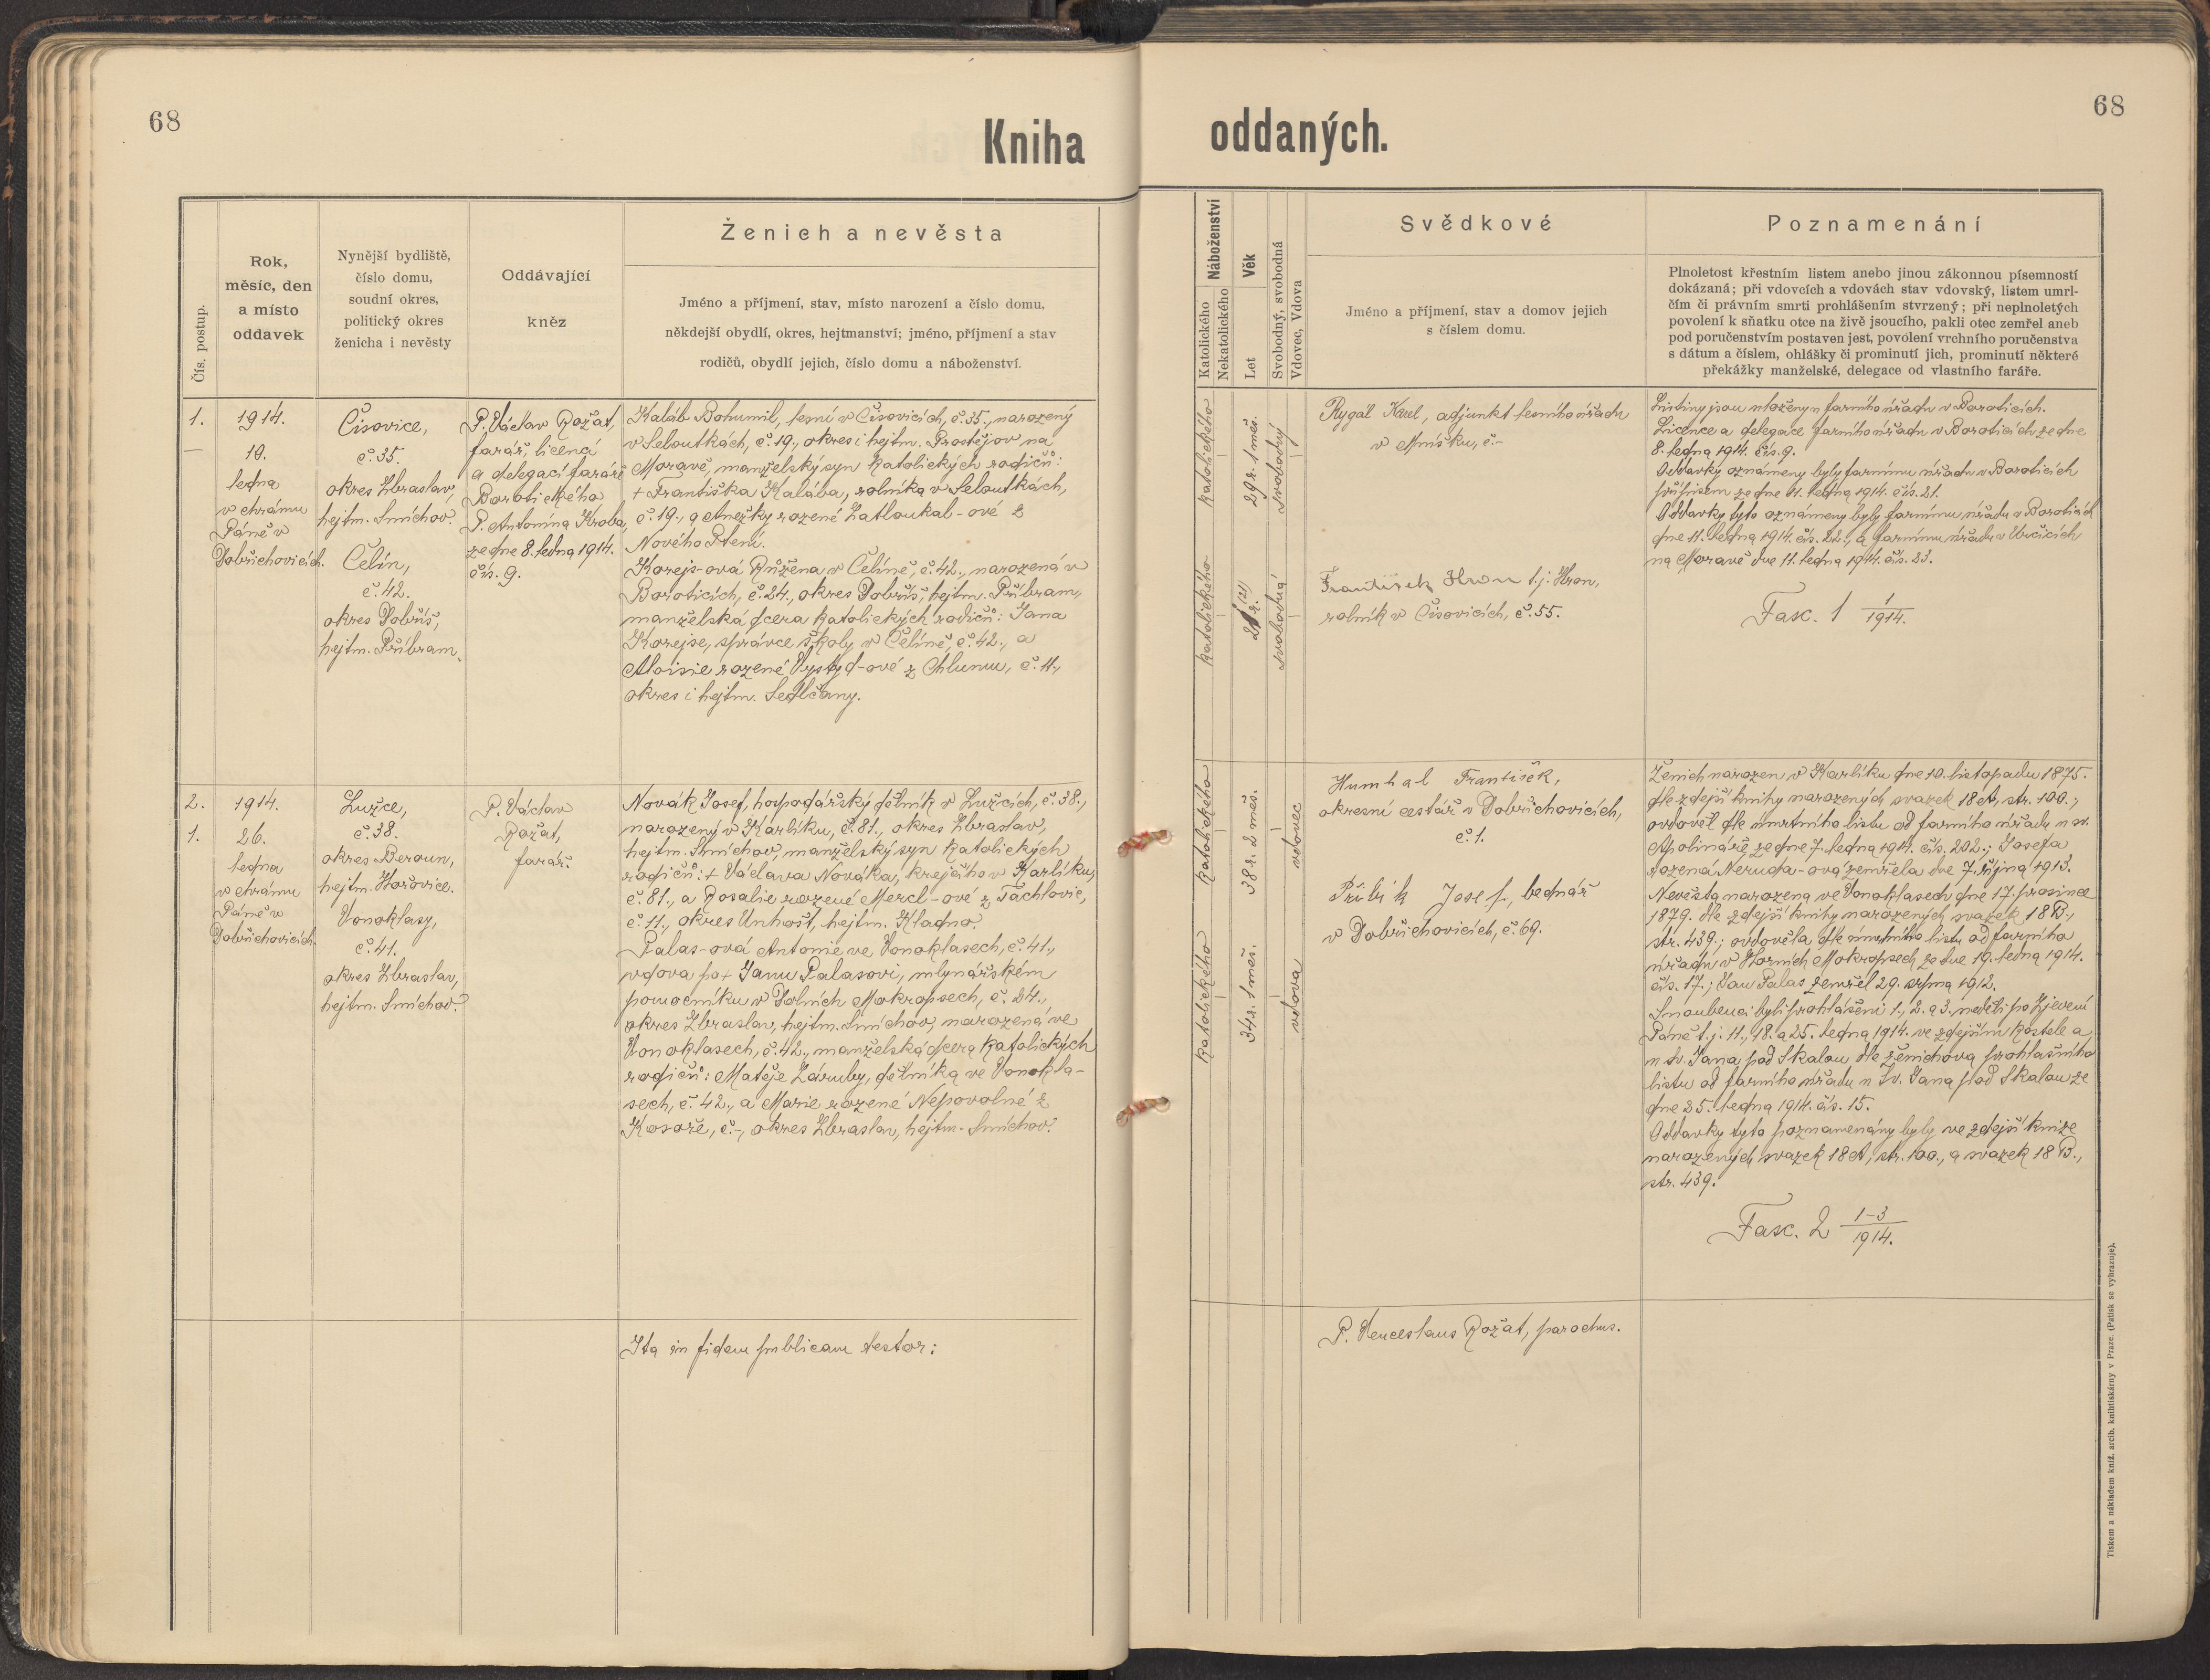 68
Kniha
oddaných.
68
Čís. postup.
Rok,
měsíc, den
a místo
oddavek
Nynější bydliště,
číslo domu,
soudní okres,
politický okres
ženicha i nevěsty
Oddávající
kněz
Ženich a nevěsta
Jméno a příjmení, stav, místo narození a číslo domu,
někdejší obydlí, okres, hejtmanství; jméno, příjmení a stav
rodičů, obydlí jejich, číslo domu a náboženství.
Náboženství
Katolického
Nekatolického
Věk
Let
Svobodný, svobodná
Vdovec, Vdova
Svědkové
Jméno a příjmení, stav a domov jejich
s číslem domu.
Poznamenání
Plnoletost křestním listem anebo jinou zákonnou písemností
dokázaná; při vdovcích a vdovách stav vdovský, listem umrl-
čím či právním smrti prohlášením stvrzený; při neplnoletých
povolení k sňatku otce na živě jsoucího, pakli otec zemřel aneb
pod poručenstvím postaven jest, povolení vrchního poručenstva
s dátum a číslem, ohlášky či prominutí jich, prominutí některé
překážky manželské, delegace od vlastního faráře.
1.
—
1914.
10.
ledna
v chrámu
Páně v
Dobřichovicích.
Čisovice,
č. 35.
okres Zbraslav,
hejtm. Smíchov.
Čelín,
č. 42.
okres Dobříš,
hejtm. Příbram.
P. Václav Rožat,
farář, licencí
a delegací faráře
Borotického
P. Antonína Kroba,
ze dne 8. ledna 1914.
čís. 9.
Kaláb Bohumil, lesní v Čisovicích, č. 35., narozený
v Seloutkách, č. 19., okres i hejtm. Prostějov na
Moravě, manželský syn katolických rodičů:
+ Františka Kalába, rolníka v Seloutkách,
č. 19., a Anežky rozené Zatloukal-ové z
Nového Ptení.
Korejs-ová Růžena v Čelíně, č. 42., narozená v
Boroticích, č. 24., okres Dobříš, hejtm. Příbram,
manželská dcera katolických rodičů: Jana
Korejse, správce školy v Čelíně, č. 42., a
Aloisie rozené Vystyd-ové z Chlumu, č. 11.,
okres i hejtm. Sedlčany.
katolického
29 r. 1 měs.
svobodný
katolického
(21)
r.
svobodná
Rygál Karel, adjunkt lesního úřadu
v Mníšku, č.-
František Hron t. j. Hron,
rolník v Čisovicích, č. 55.
Listiny jsou uloženy u farního úřadu v Boroticích.
Licence a delegace farního úřadu v Boroticích ze dne
8. ledna 1914. čís. 9.
Oddavky oznámeny byly farnímu úřadu v Boroticích
přípisem ze dne 11. ledna 1914. čís. 21.
Oddavky tyto oznámeny byly farnímu úřadu v Boroticích
dne 11. ledna 1914. čís. 22., a farnímu úřadu v Určicích
na Moravě dne 11. ledna 1914. čís. 23.
Fasc. 1 1/1914.
2.
1.
1914.
26.
ledna
v chrámu
Páně v
Dobřichovicích.
Lužce,
č. 38.
okres Beroun,
hejtm. Hořovice.
Vonoklasy,
č. 41.
okres Zbraslav,
hejtm. Smíchov.
P. Václav
Rožat,
farář.
Novák Josef, hospodářský dělník v Lužcích, č. 38.,
narozený v Karlíku, č. 81., okres Zbraslav,
hejtm. Smíchov, manželský syn katolických
rodičů: + Václava Nováka, krejčího v Karlíku,
č. 81., a Rosalie rozené Mercl-ové z Tachlovic,
č. 11., okres Unhošť, hejtm. Kladno.
Palas-ová Antonie ve Vonoklasech, č. 41.,
vdova po + Janu Palasovi, mlynářském
pomocníku v Dolních Mokropsech, č. 24.,
okres Zbraslav, hejtm. Smíchov, narozená ve
Vonoklasech, č. 42., manželská dcera katolických
rodičů: Matěje Záruby, dělníka ve Vonokla-
sech, č. 42., a Marie rozené Nepovolné z
Kosoře, č.-, okres Zbraslav, hejtm. Smíchov.
katolického
38 r. 2 měs.
vdovec
katolického
34 r. 1 měs.
vdova
Humhal František,
okresní cestář v Dobřichovicích,
č. 1.
Přibík Josef, bednář
v Dobřichovicích, č. 69.
Ženich narozen v Karlíku dne 10. listopadu 1875.
dle zdejší knihy narozených svazek 18 A, str. 100.;
ovdověl dle úmrtního listu od farního úřadu u sv.
Apolináře ze dne 7. ledna 1914. čís. 202.; Josefa
rozená Neruda-ová zemřela dne 7. října 1913.
Nevěsta narozena ve Vonoklasech dne 17. prosince
1879. dle zdejší knihy narozených svazek 18 B.,
str. 439.; ovdověla dle úmrtního listu od farního
úřadu v Horních Mokropsech ze dne 19. ledna 1914.
čís. 17.; Jan Palas zemřel 29. srpna 1912.
Snoubenci byli prohlášeni 1., 2. a 3. neděli po Zjevení
Páně t. j. 11., 18. a 25. ledna 1914. ve zdejším kostele a
u sv. Jana pod Skalou dle ženichova prohlašního
listu od farního úřadu u Sv. Jana pod Skalou ze
dne 25. ledna 1914. čís. 15.
Oddavky tyto poznamenány byly ve zdejší knize
narozených svazek 18 A, str. 100., a svazek 18 B.,
str. 439.
Fasc. 2 1-3/1914.
Ita in fidem publicam testor:
P. Venceslaus Rožat, parochus.
Tiskem a nákladem kníž. arcib. knihtiskárny v Praze. (Patisk se vyhrazuje).